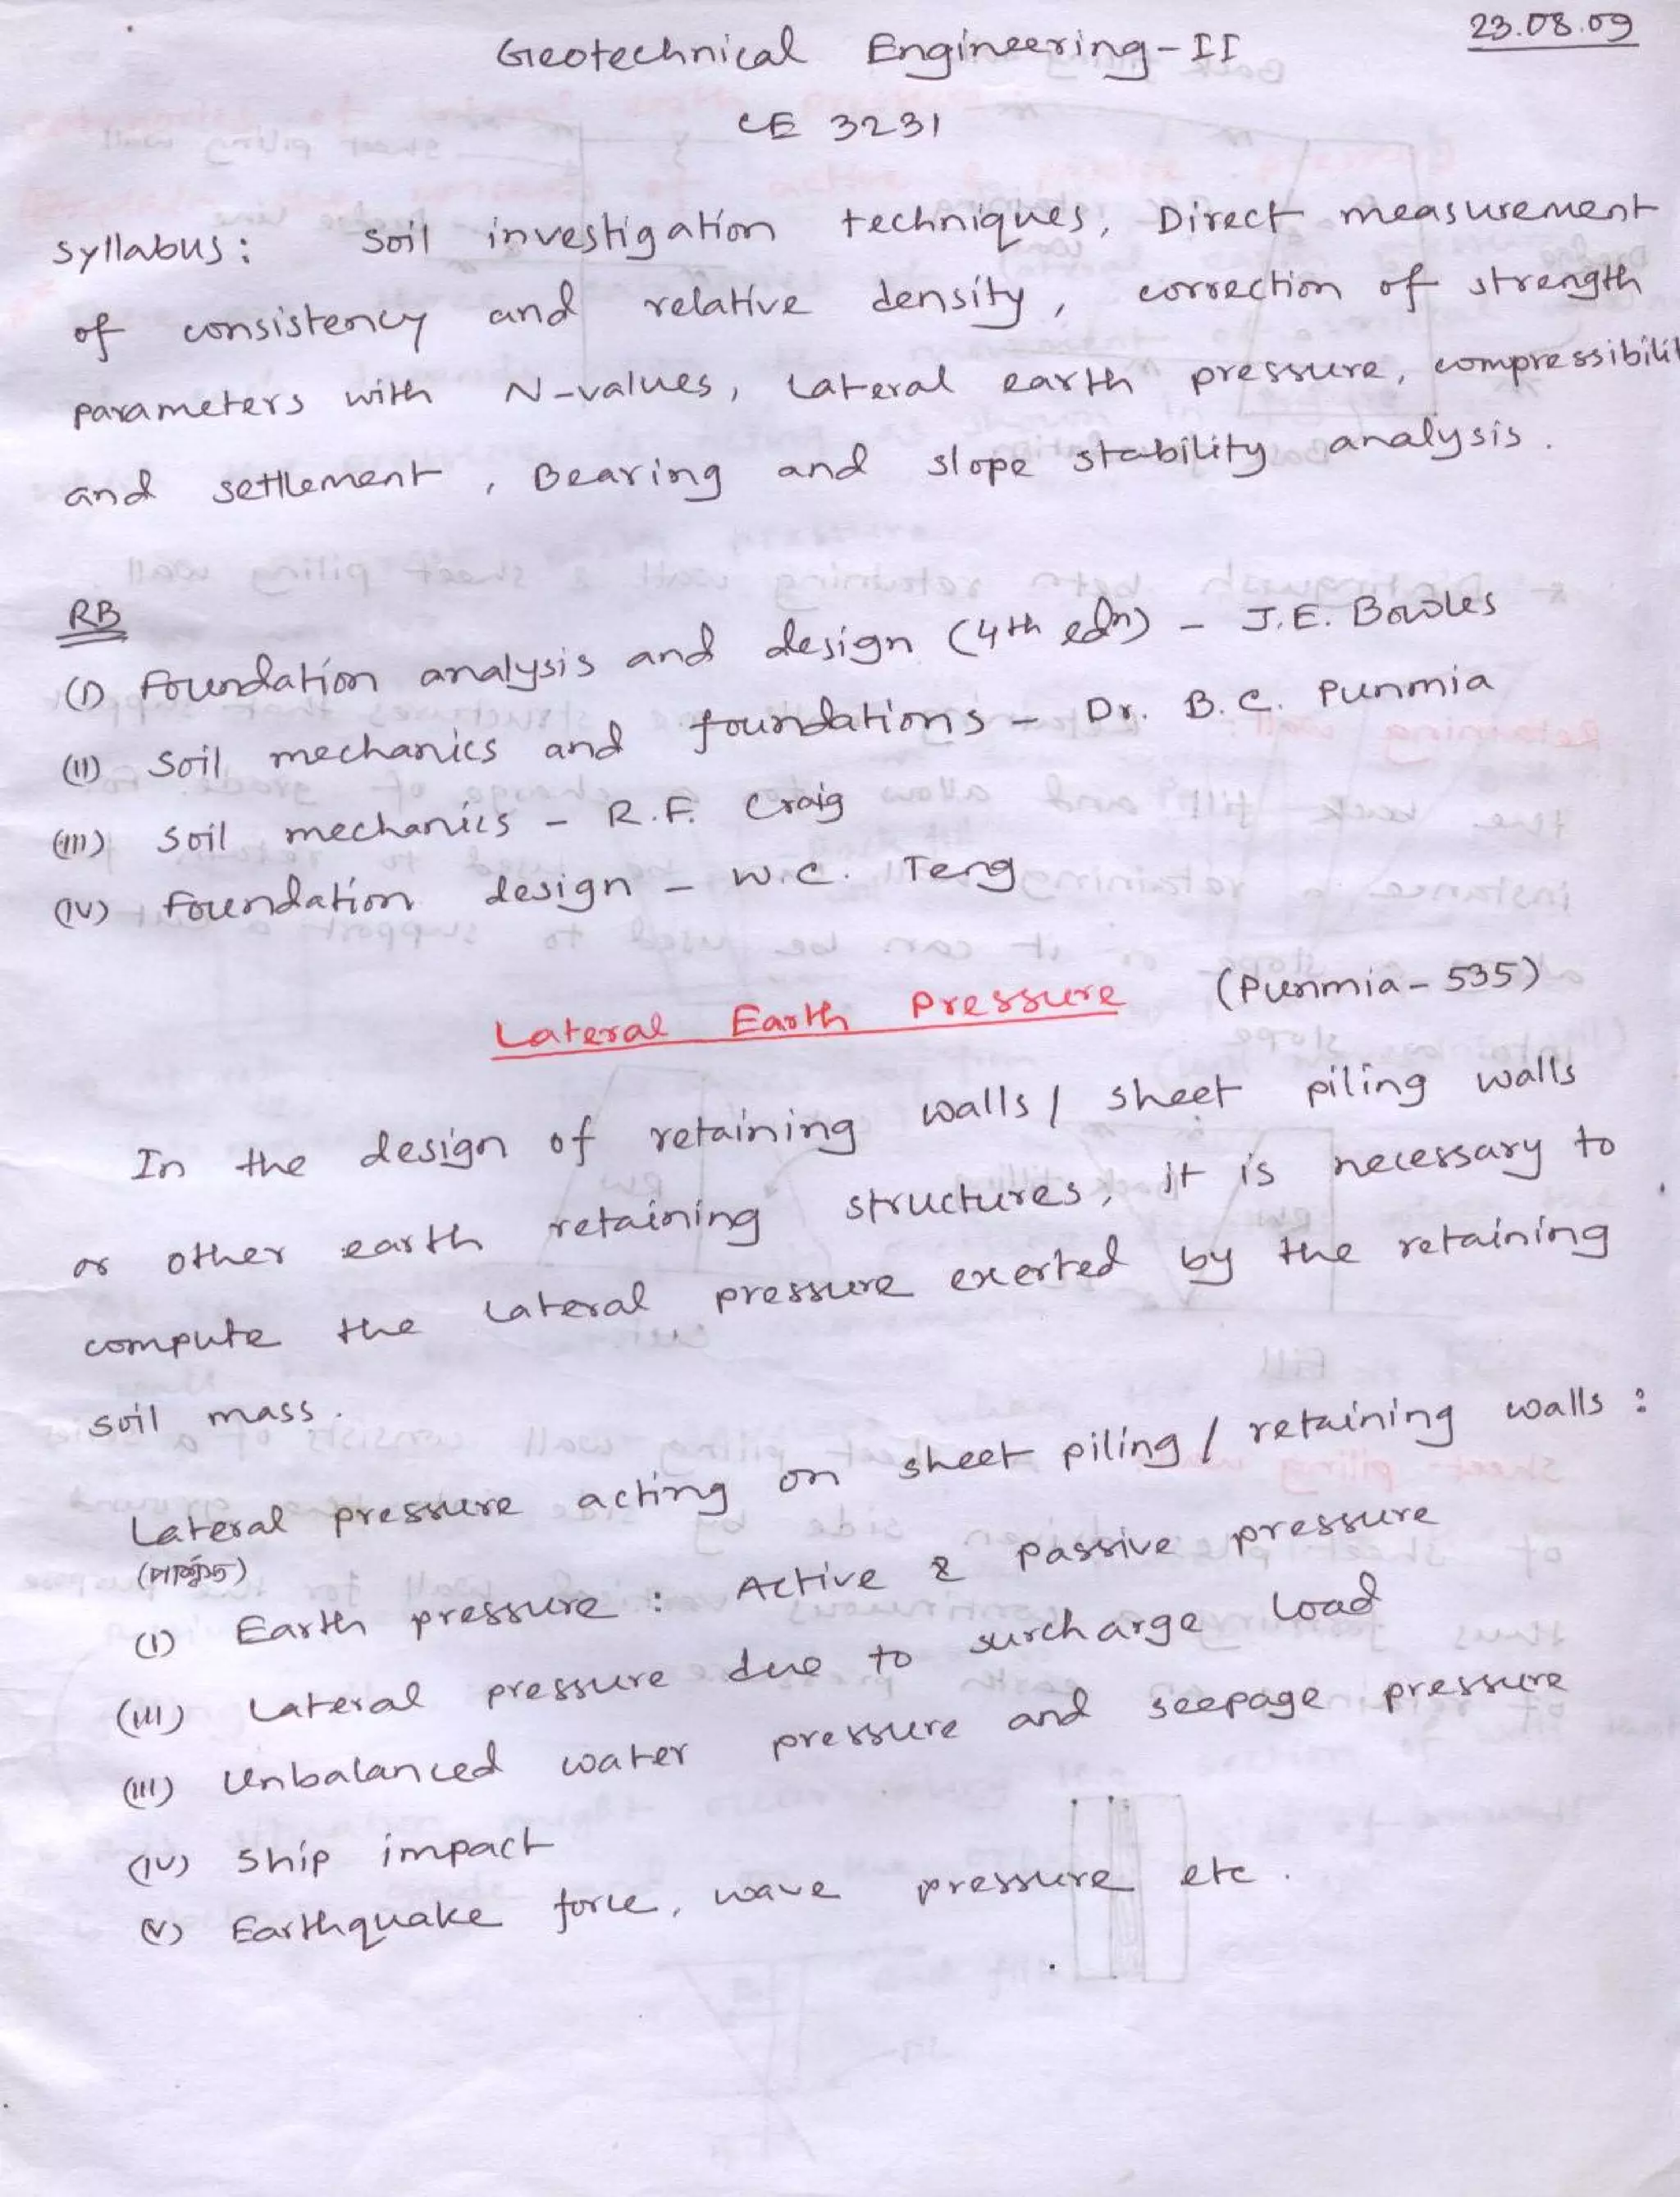 23.08.09
Geotechnical Engineering-II
CE 3231
Syllabus: Soil investigation techniques, Direct measurement
of consistency and relative density, correction of strength
parameters with N-values, Lateral earth pressure, compressibilit
and settlement, Bearing and slope stability analysis.
RB
(I) Foundation analysis and design (4th edn) - J.E. Bowles
(II) Soil mechanics and foundations - Dr. B.C. Punmia
(III) Soil mechanics - R.F. Craig
(IV) Foundation design - W.C. Teng
Lateral Earth Pressure (Punmia-535)
In the design of retaining walls/ sheet piling walls
or other earth retaining structures, it is necessary to
compute the lateral pressure exerted by the retaining
soil mass.
Lateral pressure acting on sheet piling/ retaining walls:
(পার্শ্বগত)
(I) Earth pressure: Active & passive pressure
(III) Lateral pressure due to surcharge load
(III) Unbalanced water pressure and seepage pressure
(IV) Ship impact
(V) Earthquake force, wave pressure etc.